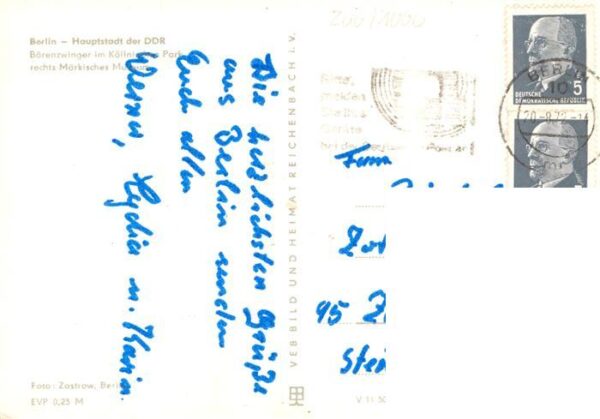 Berlin – Hauptstadt der DDR
Bärenzwinger im Köllnischen Park
rechts Märkisches Museum
Die herzlichsten Grüße
aus Berlin senden
Euch allen
Werner, Lydia u. Karin.
Foto: Zastrow, Berlin
EVP 0,25 M
VEB BILD UND HEIMAT REICHENBACH i. V.
V 11 50
200/1000
Bitte,
melden
Sie Ihre
Geräte
bei der Post an
BERLIN
10
5
DEUTSCHE
DEMOKRATISCHE REPUBLIK
Fam
95 Z